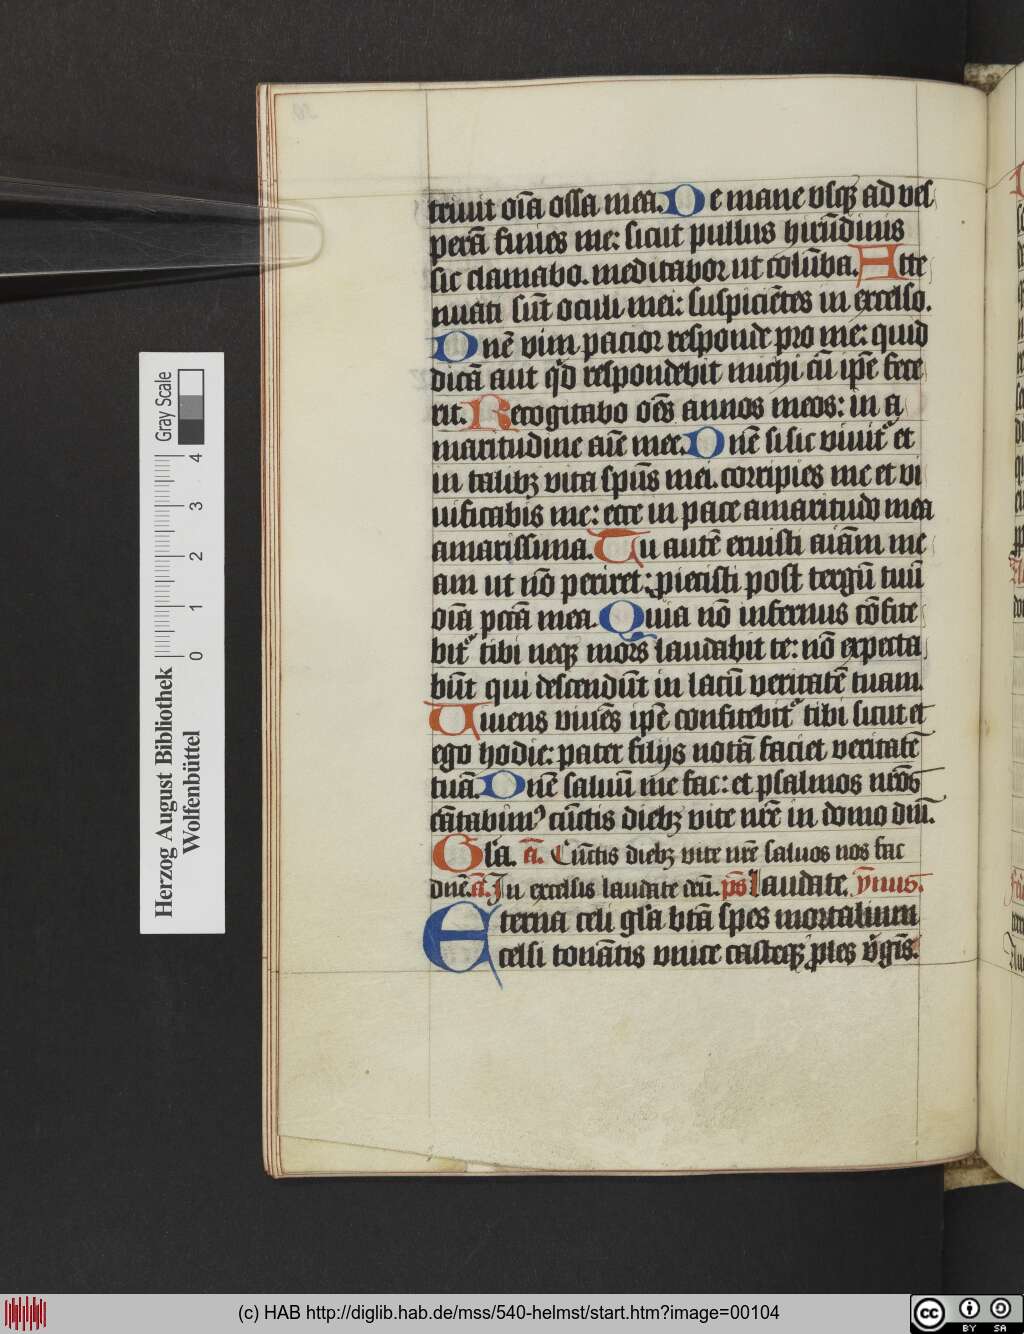 triuit oīa ossa mea. De mane vsqꝫ ad ves
perā finies me: sicut pullus hirūdinis
sic clamabo. meditabor ut colūba. Atte
nuati sūt oculi mei: suspiciētes in excelso.
Dnē vim pacior responde pro me: quid
dicā aut qd respondebit michi cū ipē fece
rit. Recogitabo oēs annos meos: in a
maritudine aīe mee. Dnē si sic viuitᷣ et
in talibꝫ vita spūs mei. corripies me et vi
uificabis me: ecce in pace amaritudo mea
amarissima. Tu autē eruisti aīam me
am ut nō periret: proiecisti post tergū tuū
oīa pctā mea. Quia nō infernus cōfite
bitᷣ tibi neqꝫ mors laudabit te: nō expecta
būt qui descendūt in lacū veritatē tuam.
Uiuens viuēs ipē confitebitᷣ tibi sicut et
ego hodie: pater filijs notā faciet veritatē
tuā. Dnē saluū me fac: et psalmos nrōs
cātabimꝰ cūctis diebꝫ vite nrē in domo dnī.
Glā. a. Cūctis diebꝫ vite nrē saluos nos fac
dnē. a. In excelsis laudate deū. ps Laudate. ymnus.
Eterna celi glā btā spes mortalium
celsi tonātis vnice casteqꝫ ples v̄gīs.
20
Herzog August Bibliothek
Wolfenbüttel
0 1 2 3 4
Gray Scale
(c) HAB http://diglib.hab.de/mss/540-helmst/start.htm?image=00104
cc BY SA